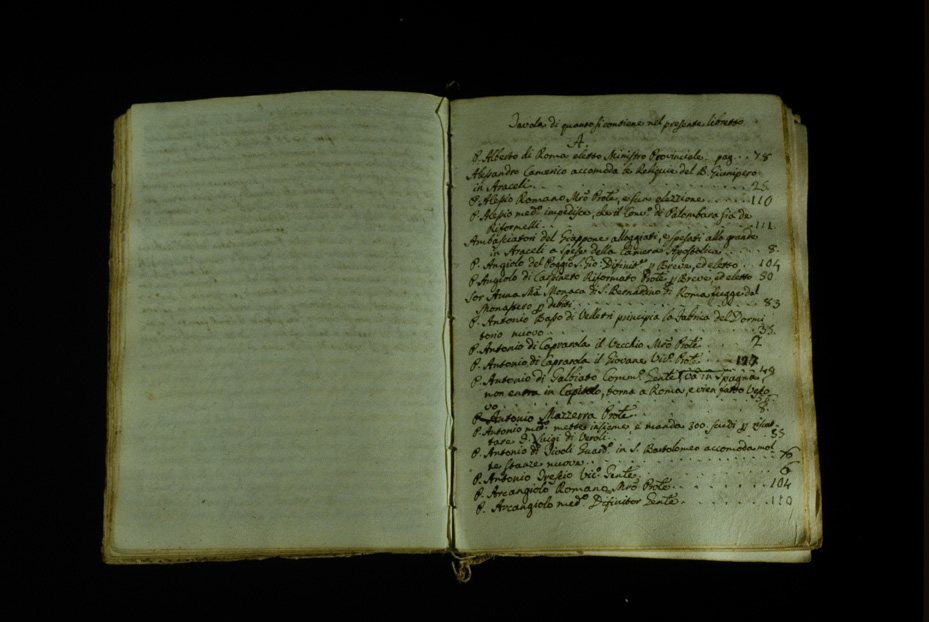 Tavola di quanto si contiene nel presente libretto
A.
P. Alberto di Roma eletto Ministro Provinciale. pag. . . 75
Alessandro Camerico accomoda le Reliquie del B. Giunipero
in Araceli . . . 25
P. Alesio Romano Mrõ Prõle, e sua elezzione . . . 110
P. Alesio med.º impedisce, che il Conv.º di Palombara sia de
Riformelli . . . 111
Ambasciatori del Giappone alloggiati, e spesati alla grande
in Araceli a spese della Camera Apostolica . . . 8.
P. Angiolo del Poggio S. Gio Difinit.re p Breve, ed eletto . 104
P. Angiolo di Carpineto Riformato Prõle p Breve, ed eletto 50
Sor Anna Mã. Monaca di S. Bernardino di Roma fugge dal
Monastero p debiti . . . 83
P. Antonio Baso di Velletri principia la fabrica del Dormi
torio nuovo . . . 35.
P. Antonio di Caprarola il Vecchio Mrõ Prõle 2
P. Antonio di Caprarola il Giovane Vic.º Prõle . . . 127
P. Antonio di Galbiato Comm.º Gente va in Spagna, 49
non entra in Capitolo, torna a Roma, e vien fatto Vesco
vo . . .
P. Antonio Mazzerra Prõle . . . 8.
P. Antonio med.º mette insieme, e manda 300. scudi p
P. Luigi di Veroli . . . 55
P. Antonio di Tivoli Guard.º in S. Bartolomeo accomoda mol
te stanze nuove . . . 76
P. Antonio Vic.º Gente . . . 6
P. Arcangiolo Romano Mrõ Prõle . . . 104
P. Arcangiolo med.º Difinitor Gente . . . 110